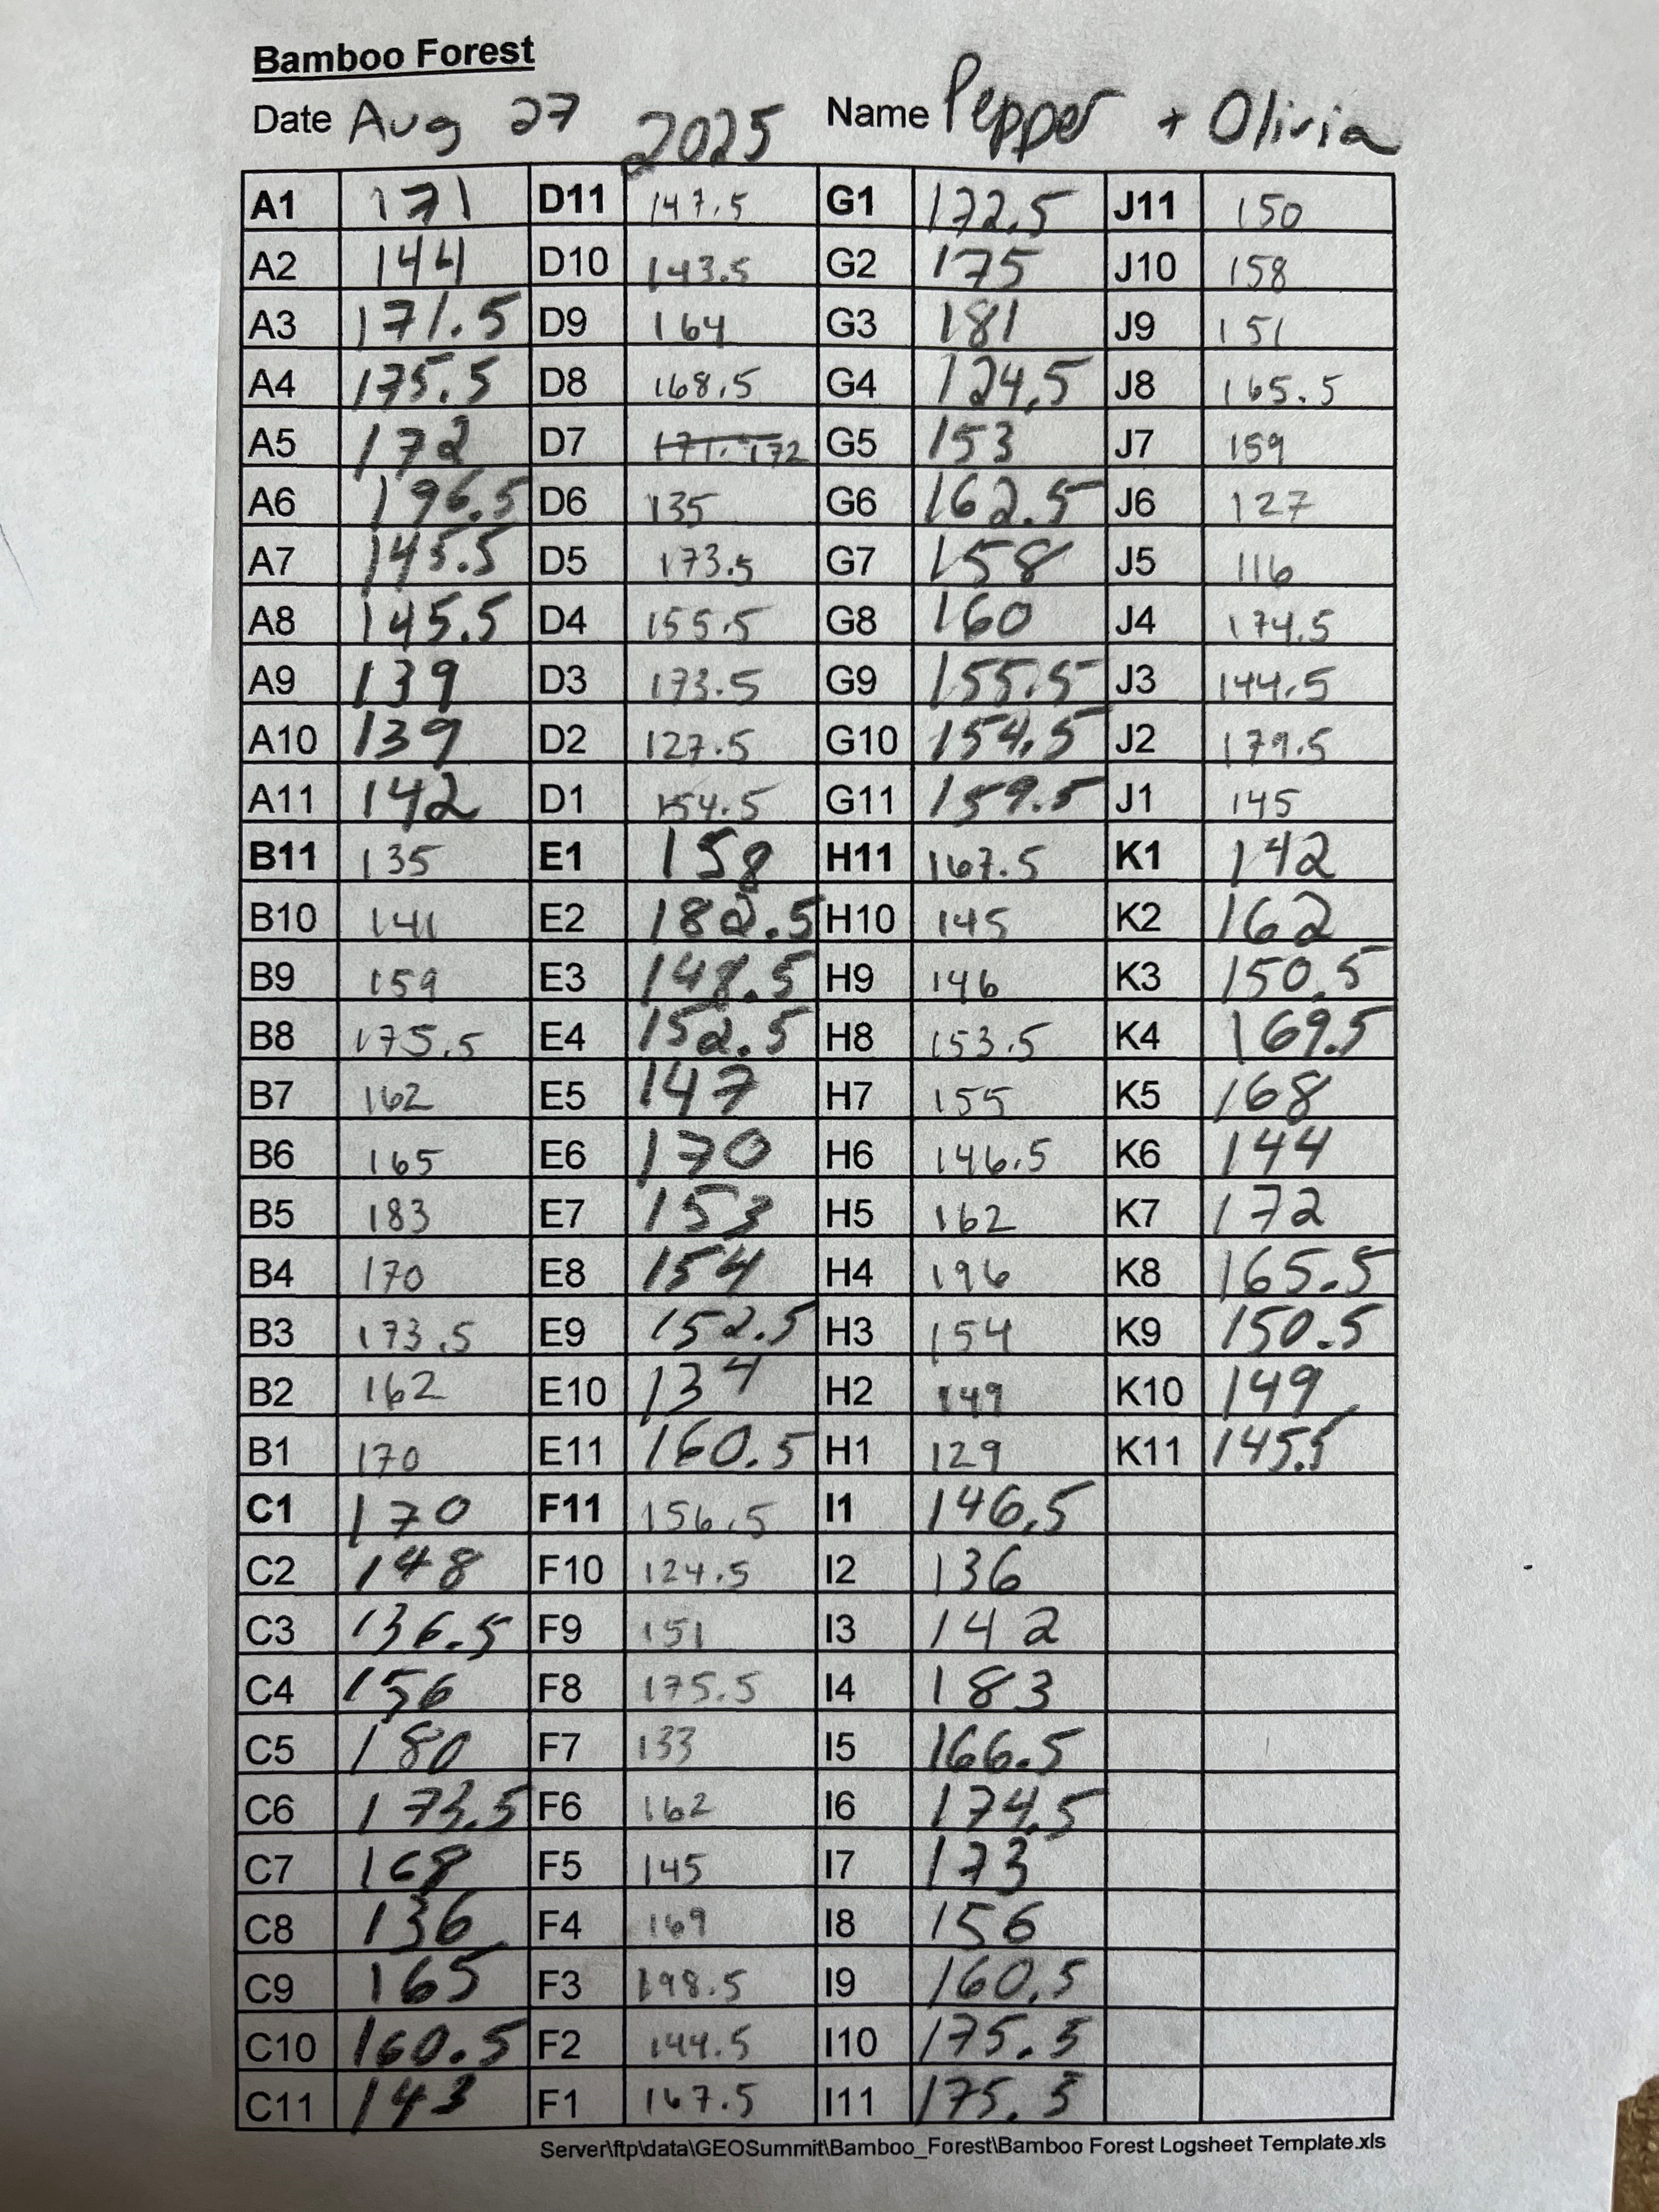 Bamboo Forest
Date Aug 27 2025 Name Pepper + Olivia
A1 171 D11 147.5 G1 172.5 J11 150
A2 144 D10 143.5 G2 175 J10 158
A3 171.5 D9 164 G3 181 J9 151
A4 175.5 D8 168.5 G4 124.5 J8 165.5
A5 172 D7 171. 172 G5 153 J7 159
A6 196.5 D6 135 G6 162.5 J6 127
A7 145.5 D5 173.5 G7 158 J5 116
A8 145.5 D4 155.5 G8 160 J4 174.5
A9 139 D3 173.5 G9 155.5 J3 144.5
A10 139 D2 127.5 G10 154.5 J2 179.5
A11 142 D1 154.5 G11 159.5 J1 145
B11 135 E1 158 H11 167.5 K1 142
B10 141 E2 182.5 H10 145 K2 162
B9 159 E3 148.5 H9 146 K3 150.5
B8 175.5 E4 152.5 H8 153.5 K4 169.5
B7 162 E5 147 H7 155 K5 168
B6 165 E6 170 H6 146.5 K6 144
B5 183 E7 153 H5 162 K7 172
B4 170 E8 154 H4 196 K8 165.5
B3 173.5 E9 152.5 H3 154 K9 150.5
B2 162 E10 134 H2 149 K10 149
B1 170 E11 160.5 H1 129 K11 145.5
C1 170 F11 156.5 I1 146.5
C2 148 F10 124.5 I2 136
C3 136.5 F9 151 I3 142
C4 156 F8 175.5 I4 183
C5 180 F7 133 I5 166.5
C6 173.5 F6 162 I6 174.5
C7 168 F5 145 I7 173
C8 136 F4 169 I8 156
C9 165 F3 198.5 I9 160.5
C10 160.5 F2 144.5 I10 175.5
C11 143 F1 167.5 I11 175.5
Server\ftp\data\GEOSummit\Bamboo_Forest\Bamboo Forest Logsheet Template.xls